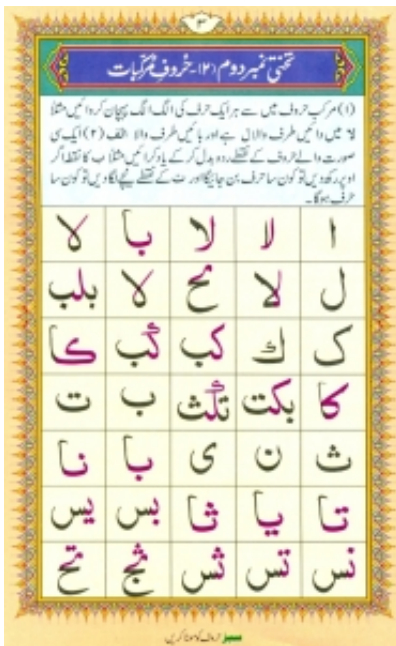 ۳
تختی نمبر دوم (۲)- حُروفِ مُرکّبات
(۱) مرکب حروف میں سے ہر ایک حرف کی الگ الگ پہچان کروائیں مثلاً
لا میں دائیں طرف والا ل ہے اور بائیں طرف والا الف (۲) ایک سی
صورت والے حروف کے نقطے ردوبدل کر کے یاد کرائیں مثلاً ب کا نقطہ اگر
اوپر رکھ دیں تو کون سا حرف بن جائیگا اور ت کے نقطے نیچے لگا دیں تو کون سا
حرف ہوگا۔
ا لا لا با لا
ل لا لا بلب
ک ك کب کب کا
کا بکت تلث ب ت
ث ن ی با نا
تا یا ثا بس یس
نس تس ثس ثج تح
سبز حروف کو موٹا کریں